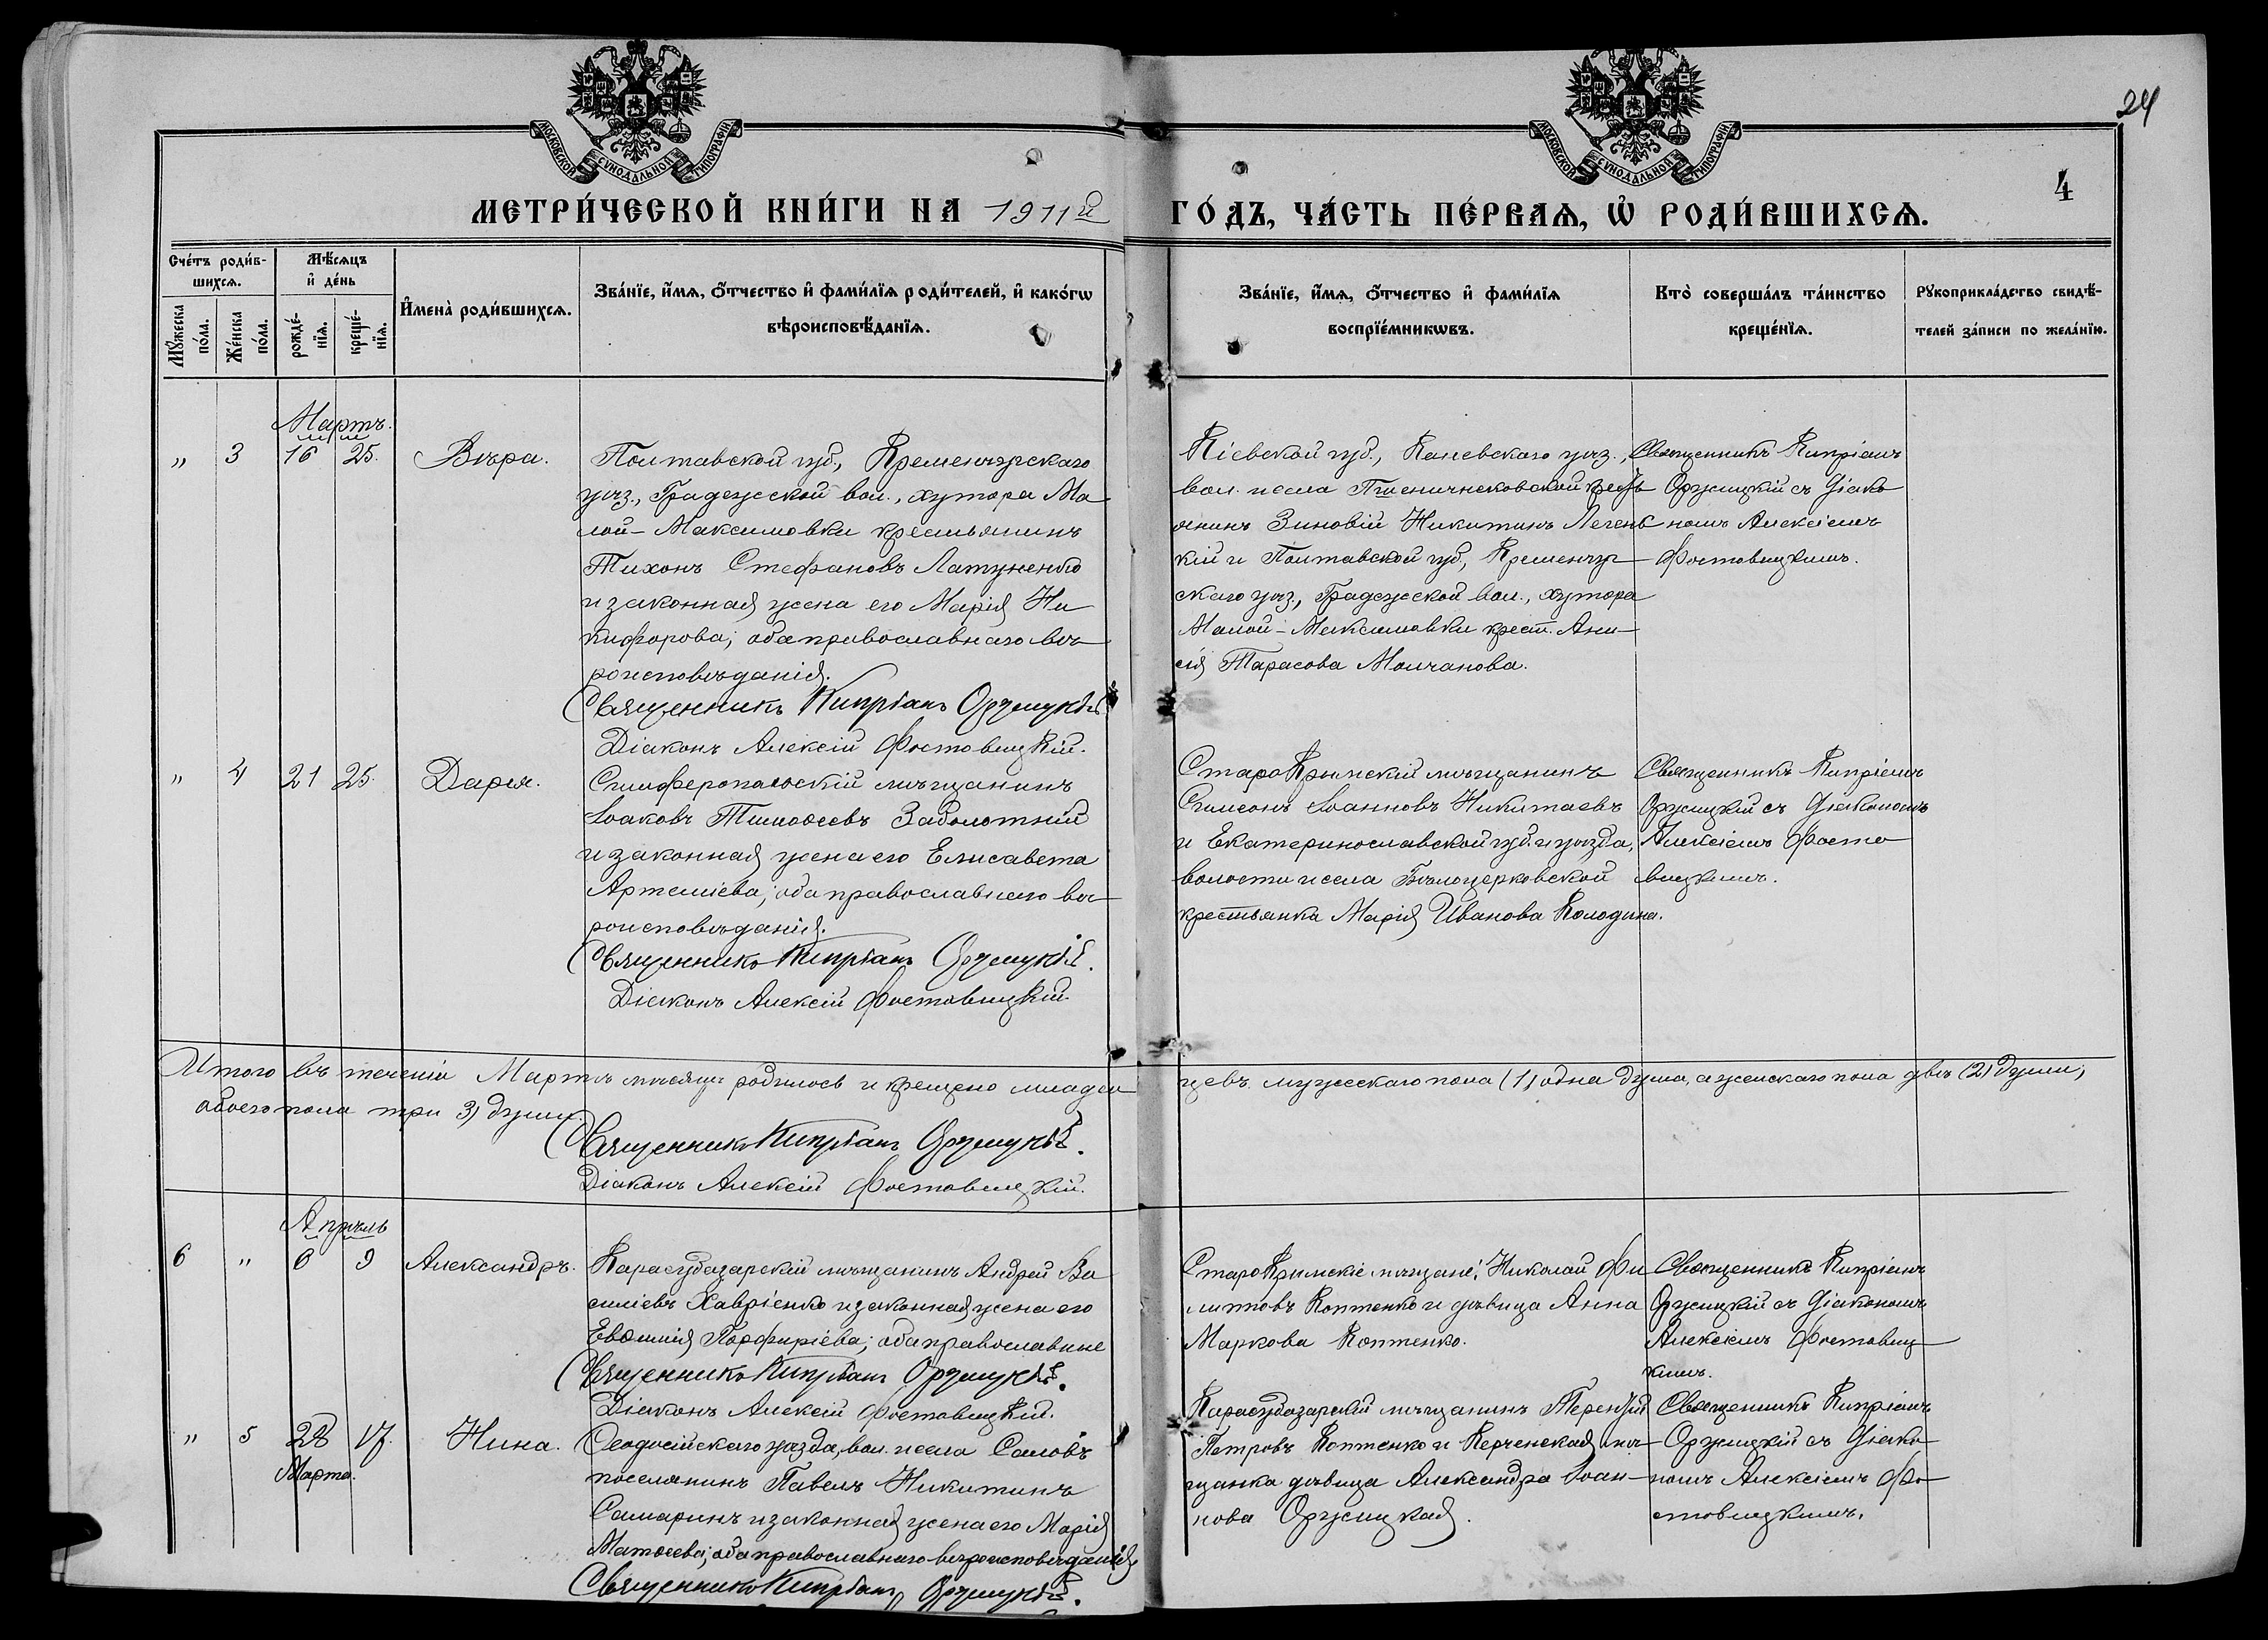 24
МОСКОВСКОЙ СѴНОДАЛЬНОЙ ТИПОГРАФІИ
МОСКОВСКОЙ СѴНОДАЛЬНОЙ ТИПОГРАФІИ
4
МЕТРИ́ЧЕСКОЙ КНИ́ГИ НА 1911й ГО́ДЪ, ЧА́СТЬ ПЕ́РВАѦ, Ѡ҆ РОДИ́ВШИХСѦ.
Сче́тъ роди́в-
шихсѧ.
Мѣ́сѧцъ
и҆ де́нь
Мꙋ́жеска
по́ла.
Же́нска
по́ла.
рожде́-
нїѧ.
креще́-
нїѧ.
И҆мена̀ роди́вшихсѧ.
Зва́нїе, и҆́мѧ, ѻ҆́тчество и҆ фами́лїѧ роди́телей, и҆ како́гѡ
вѣроисповѣ́данїѧ.
Зва́нїе, и҆́мѧ, ѻ҆́тчество и҆ фами́лїѧ
воспрїе́мникѡвъ.
Кто̀ соверша́лъ та́инство
креще́нїѧ.
Рꙋкоприкла́дство свидѣ́-
телей за́писи по жела́нїю.
Мартъ.
" 3 16 25. Вѣра.
Полтавской губ., Кременчугскаго
уѣз., Градежской вол., хутора Ма
лой-Максимовки крестьянинъ
Тихонъ Стефановъ Латуненко
и законная жена его Марія Ни
кифорова; оба православнаго вѣ
роисповѣданія.
Священникъ Кипріанъ Оржицкій
Діаконъ Алексій Фостовицкій.
Кіевской губ., Каневскаго уѣз.,
вол. и села Пшеничнековской крест
янинъ Зиновій Никитинъ
кій и Полтавской губ., Кременчуг
скаго уѣз., Градежской вол., хутора
Малой-Максимовки крест. Ани-
сія Тарасова Молчанова.
Священникъ Кипріанъ
Оржицкій съ Діако
номъ Алексіемъ
Фостовицкимъ.
" 4 21 25. Дарія.
Симферопольскій мѣщанинъ
Іоаковъ Тимоѳеевъ Заболотній
и законная жена его Елисавета
Артеміева; оба православнаго вѣ
роисповѣданія.
Священникъ Кипріанъ Оржицкій.
Діаконъ Алексій Фостовицкій.
СтароКрымскій мѣщанинъ
Симеонъ Іоанновъ Никитаевъ
и Екатеринославской губ. и уѣзда,
волости и села Бѣлоцерковской
крестьянка Марія Иванова Колодина.
Священникъ Кипріанъ
Оржицкій съ Діакономъ
Алексіемъ Фосто
вицкимъ.
Итого въ теченіи Мартъ мѣсяцъ родилось и крещено младен цевъ мужескаго пола (1) одна душа, а женскаго пола двѣ (2) души,
обоего пола три 3) души.
Священникъ Кипріанъ Оржицкій.
Діаконъ Алексій Фостовицкій.
Апрѣль
6 " 6 9 Александръ.
Карасубазарскій мѣщанинъ Андрей Ва
силіевъ Хавріенко и законная жена его
Евѳимія Порфиріева; оба православные
Священникъ Кипріанъ Оржицкій.
Діаконъ Алексій Фостовицкій.
СтароКрымскіе мѣщане: Николай Фи
липповъ Коптенко и дѣвица Анна
Маркова Коптенко.
Священникъ Кипріанъ
Оржицкій съ Діакономъ
Алексіемъ Фостовиц
кимъ.
" 5 28 17. Нина.
Марта.
Ѳеодосійскаго уѣзда, вол. и села Саловъ
поселянинъ Павелъ Никитинъ
Самаринъ и законная жена его Марія
Матѳеева; оба православнаго вѣроисповѣданія
Священникъ Кипріанъ Оржицкій.
Карасубазарскій мѣщанинъ Терентій
Петровъ Коптенко и Керченская мѣ-
щанка дѣвица Александра Іоан-
нова Оржицкая.
Священникъ Кипріанъ
Оржицкій съ Діако
номъ Алексіемъ Фо-
стовицкимъ.